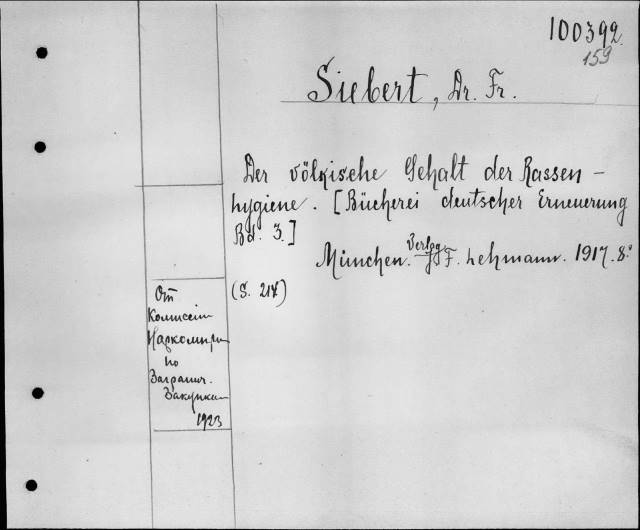 100392
159
Siebert, Dr. Fr.
Der völkische Gehalt der Rassen-
hygiene. [Bücherei deutscher Erneuerung
Bd. 3.]
München. Verlag J. F. Lehmann. 1917. 8°
(S. 214)
От
Комиссии
Наркомпр
по
Загранич.
Закупкам
1923